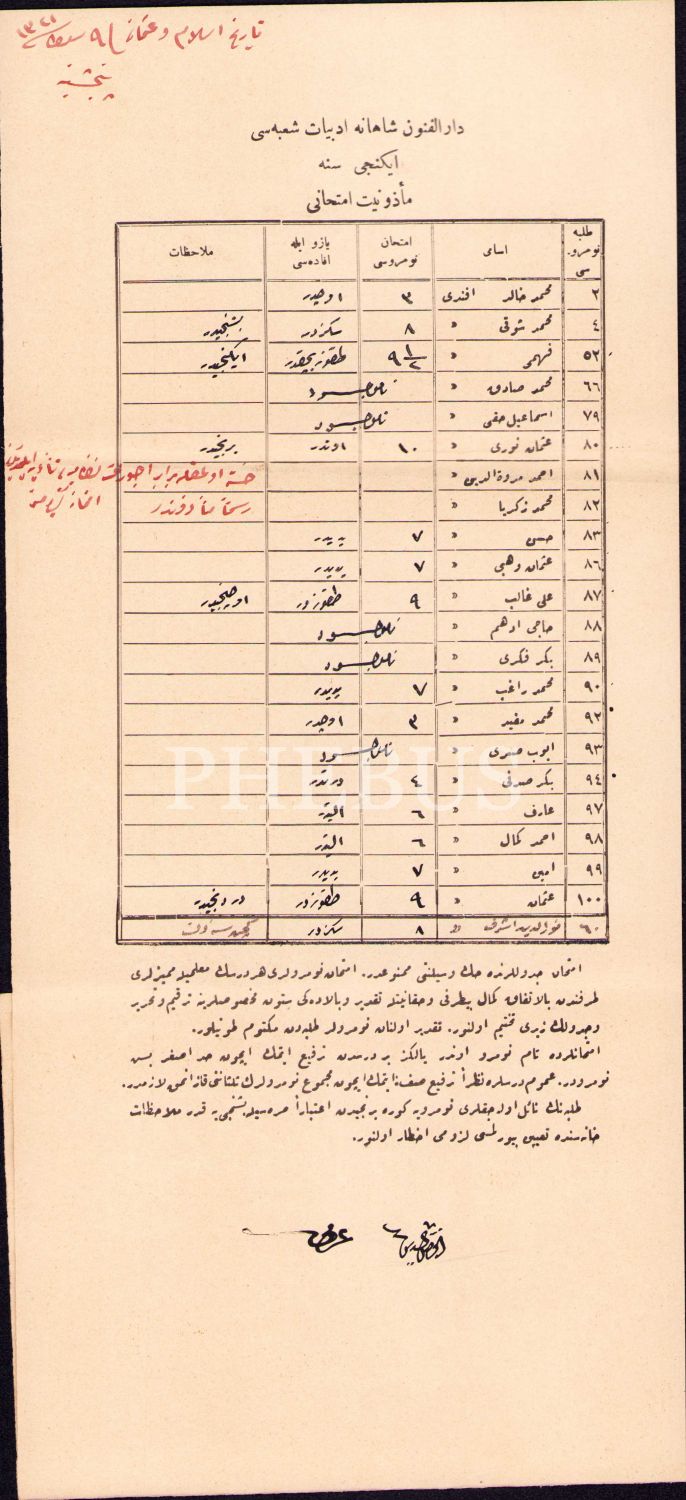 تاریخ اسلام و عثمانی ٩ ١٣٢١
پنجشنبه
دارالفنون شاهانه ادبیات شعبه‌سی
ایکنجی سنه
مأذونیت امتحانی
طلبه نومرو سی اسامی امتحان نومروسی یازو ایله افاده‌سی ملاحظات
٢ محمد خالد افندی ٣ اوچدر
٤ محمد شوقی » ٨ سکزدر بشنجیدر
٥٢ فهمی » ٩ ١/٢ طقوز بچقدر ایکنجیدر
٦٦ محمد صادق » ناموجود
٧٩ اسماعیل حقی » ناموجود
٨٠ عثمان نوری » ١٠ اوندر برنجیدر
٨١ احمد مروة الدین » خسته اولمغله برابر
٨٢ محمد زکریا » رسماً مأذوندر
٨٣ حسن » ٧ یدیدر
٨٦ عثمان وهبی » ٧ یدیدر
٨٧ علی غالب » ٩ طقوزدر اوچنجیدر
٨٨ حاجی ادهم » ناموجود
٨٩ بکر فکری » ناموجود
٩٠ محمد راغب » ٧ یدیدر
٩٢ محمد مفید » ٣ اوچدر
٩٣ ایوب صبری » ناموجود
PHEBUS
٩٤ بکر صدقی » ٤ درتدر
٩٧ عارف » ٦ التیدر
٩٨ احمد کمال » ٦ التیدر
٩٩ امین » ٧ یدیدر
١٠٠ عثمان » ٩ طقوزدر دردنجیدر
٦٠ نورالدین اشرف » ٨ سکزدر
امتحان جدوللرنده حك وسیلنتی ممنوعدر. امتحان نومرولری هر درسك معلمیله ممیزلری
طرفندن بالاتفاق کمال بیطرفی وحقانیتله تقدیر وبالاده‌کی ستون مخصوصلرینه ترقیم وتحریر
وجدولك زیری تختیم اولنور. تقدیر اولنان نومرولر طلبه‌دن مکتوم طوتیلور.
امتحانلرده تام نومرو اوندر یالکز بر درسدن ترفیع ایتمك ایچون حد اصغر بش
نومرودر. عموم درسلره نظراً ترفیع صنف ایتمك ایچون مجموع نومرولرك ثلثاننی قازانمق لازمدر.
طلبه‌نك نائل اوله‌جقلری نومرویه کوره برنجیدن اعتباراً صره‌سیله بشنجی‌یه قدر ملاحظات
خانه‌سنده تعیین بیورلمسی لزومی اخطار اولنور.